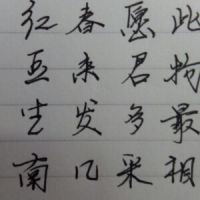 红豆生南
春来发几
愿君多采
此物最相